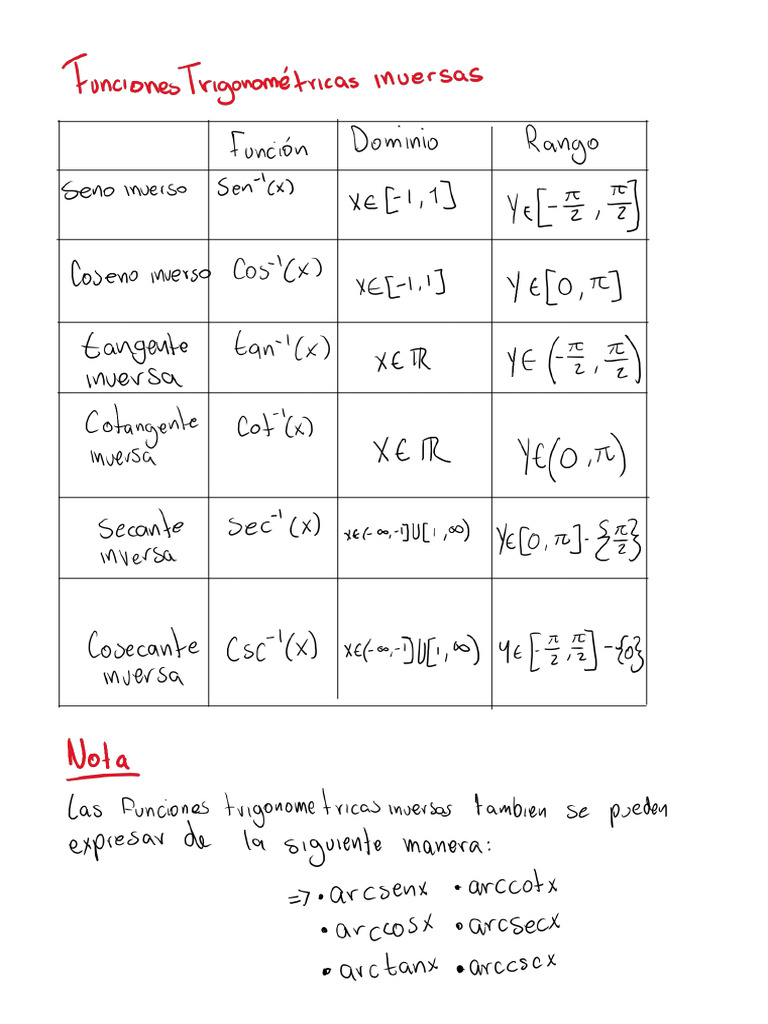 Funciones Trigonométricas inversas
Función Dominio Rango
Seno inverso Sen⁻¹(x) x∈[-1,1] y∈[-π/2, π/2]
Coseno inverso Cos⁻¹(x) x∈[-1,1] y∈[0,π]
tangente inversa tan⁻¹(x) x∈ℝ y∈(-π/2, π/2)
Cotangente inversa Cot⁻¹(x) x∈ℝ y∈(0,π)
Secante inversa Sec⁻¹(x) x∈(-∞,-1]U[1,∞) y∈[0,π]-{π/2}
Cosecante inversa Csc⁻¹(x) x∈(-∞,-1]U[1,∞) y∈[-π/2, π/2]-{0}
Nota
Las Funciones trigonometricas inversas tambien se pueden
expresar de la siguiente manera:
=> • arcsenx • arccotx
• arccosx • arcsecx
• arctanx • arccscx